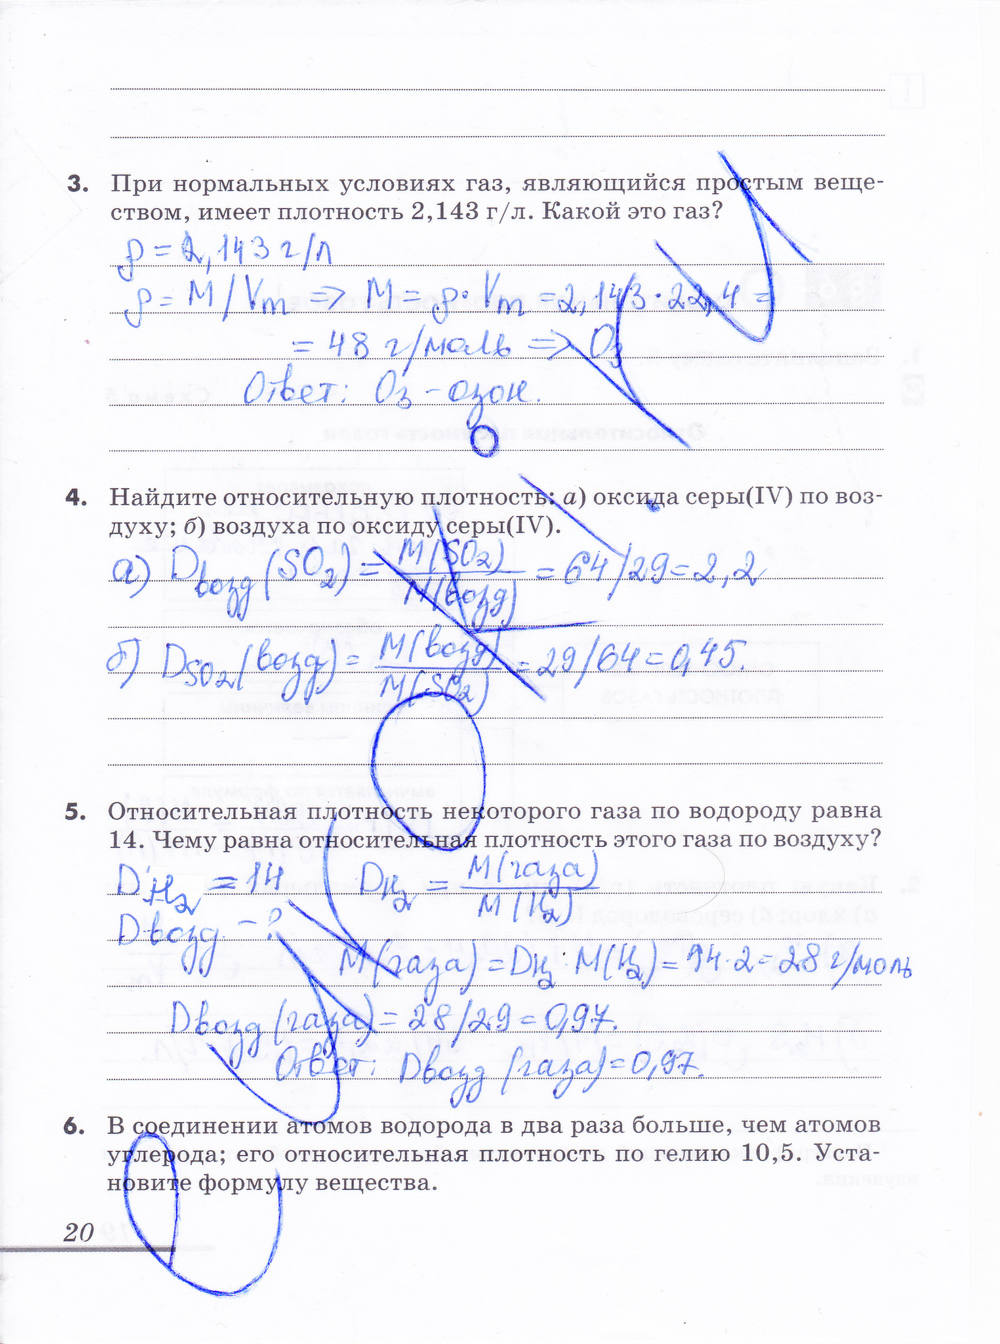 3. При нормальных условиях газ, являющийся простым веще-
ством, имеет плотность 2,143 г/л. Какой это газ?
ρ = 2,143 г/л
ρ = M/Vm => M = ρ·Vm = 2,143·22,4 =
= 48 г/моль => O3
Ответ: O3 – озон.
4. Найдите относительную плотность: а) оксида серы(IV) по воз-
духу; б) воздуха по оксиду серы(IV).
а) Dвозд (SO2) = M(SO2)/M(возд) = 64/29 = 2,2
б) DSO2 (возд) = M(возд)/M(SO2) = 29/64 = 0,45.
5. Относительная плотность некоторого газа по водороду равна
14. Чему равна относительная плотность этого газа по воздуху?
DH2 = 14 DH2 = M(газа)/M(H2)
Dвозд. – ?
M(газа) = DH2·M(H2) = 14·2 = 28 г/моль
Dвозд (газа) = 28/29 = 0,97.
Ответ: Dвозд (газа) = 0,97.
6. В соединении атомов водорода в два раза больше, чем атомов
углерода; его относительная плотность по гелию 10,5. Уста-
новите формулу вещества.
20